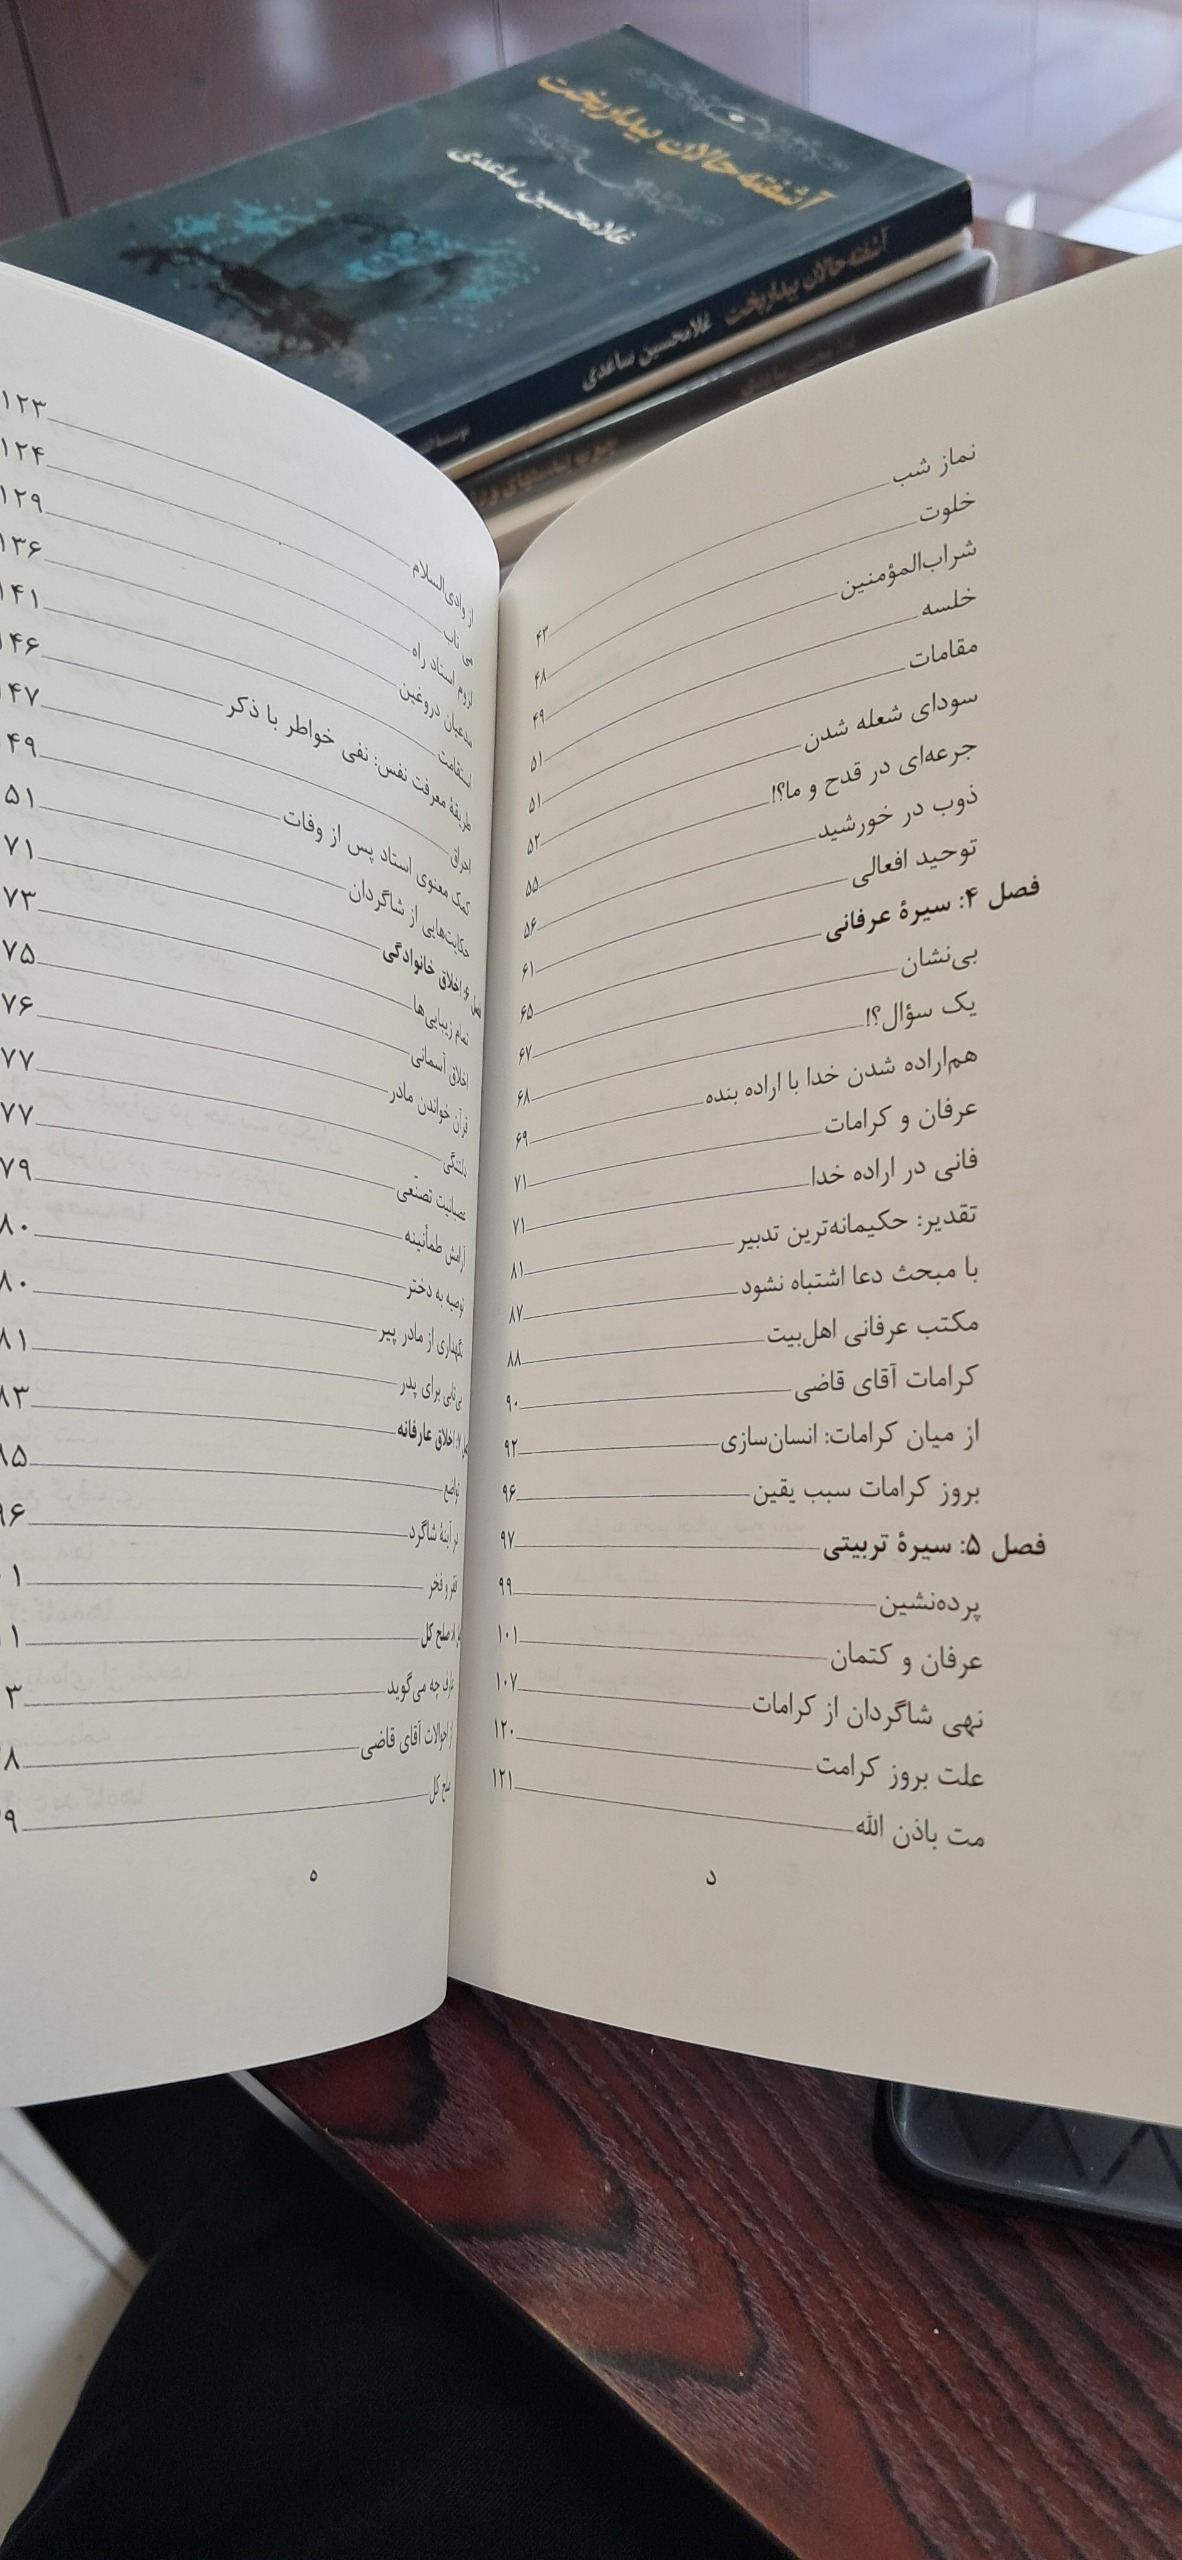 آشفته‌حالان بیداربخت
غلامحسین ساعدی
آشفته‌حالان بیداربخت غلامحسین ساعدی
نماز شب ۴۳
خلوت ۴۸
شراب‌المؤمنین ۴۹
خلسه ۵۱
مقامات ۵۱
سودای شعله شدن ۵۲
جرعه‌ای در قدح و ما؟! ۵۵
ذوب در خورشید ۵۶
توحید افعالی ۶۱
فصل ۴: سیرهٔ عرفانی ۶۵
بی‌نشان ۶۷
یک سؤال؟! ۶۸
هم‌اراده شدن خدا با اراده بنده ۶۹
عرفان و کرامات ۷۱
فانی در اراده خدا ۷۱
تقدیر: حکیمانه‌ترین تدبیر ۸۱
با مبحث دعا اشتباه نشود ۸۷
مکتب عرفانی اهل‌بیت ۸۸
کرامات آقای قاضی ۹۰
از میان کرامات: انسان‌سازی ۹۲
بروز کرامات سبب یقین ۹۶
فصل ۵: سیرهٔ تربیتی ۹۷
پرده‌نشین ۹۹
عرفان و کتمان ۱۰۱
نهی شاگردان از کرامات ۱۰۷
علت بروز کرامت ۱۲۰
مت باذن الله ۱۲۱
د
از وادی‌السلام ۱۲۳
می ناب ۱۲۴
لزوم استاد راه ۱۲۹
مدعیان دروغین ۱۳۶
استقامت ۱۴۱
طریقهٔ معرفت نفس: نفی خواطر با ذکر ۱۴۶
احراق ۱۴۷
کمک معنوی استاد پس از وفات ۴۹
حکایت‌هایی از شاگردان ۵۱
فصل ۶: اخلاق خانوادگی ۷۱
تمام زیبایی‌ها ۷۳
اخلاق آسمانی ۷۵
قرآن خواندن مادر ۷۶
دلتنگی ۷۷
عصبانیت تصنّعی ۷۷
آرامش طمأنینه ۷۹
توصیه به دختر ۸۰
نگهداری از مادر پیر ۸۰
بی‌تابی برای پدر ۸۱
۷: اخلاق عارفانه ۸۳
تواضع ۹۵
در آینهٔ شاگرد ۹۶
فقر و فخر ۱
۸: صلح کل ۱
عارف چه می‌گوید ۳
از احوالات آقای قاضی ۸
صلح کل ۹
ه